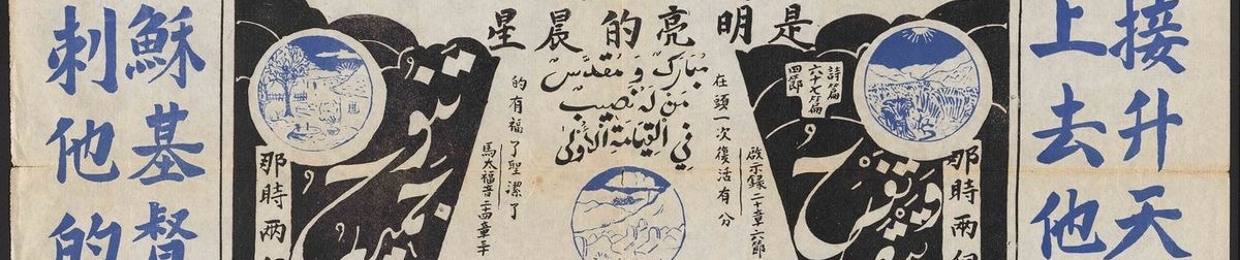 接升天
上去他
是明亮的晨星
詩篇
六十七篇
四節
那時兩個
مُبَارَكٌ وَ مُقَدَّسٌ
مَن لَهُ نَصِيبٌ
فِي القِيَامَةِ الأُولَى
啟示錄二十章六節
在頭一次復活有分
的有福了聖潔了
馬太福音二十四章
那時兩
穌基督
刺他的